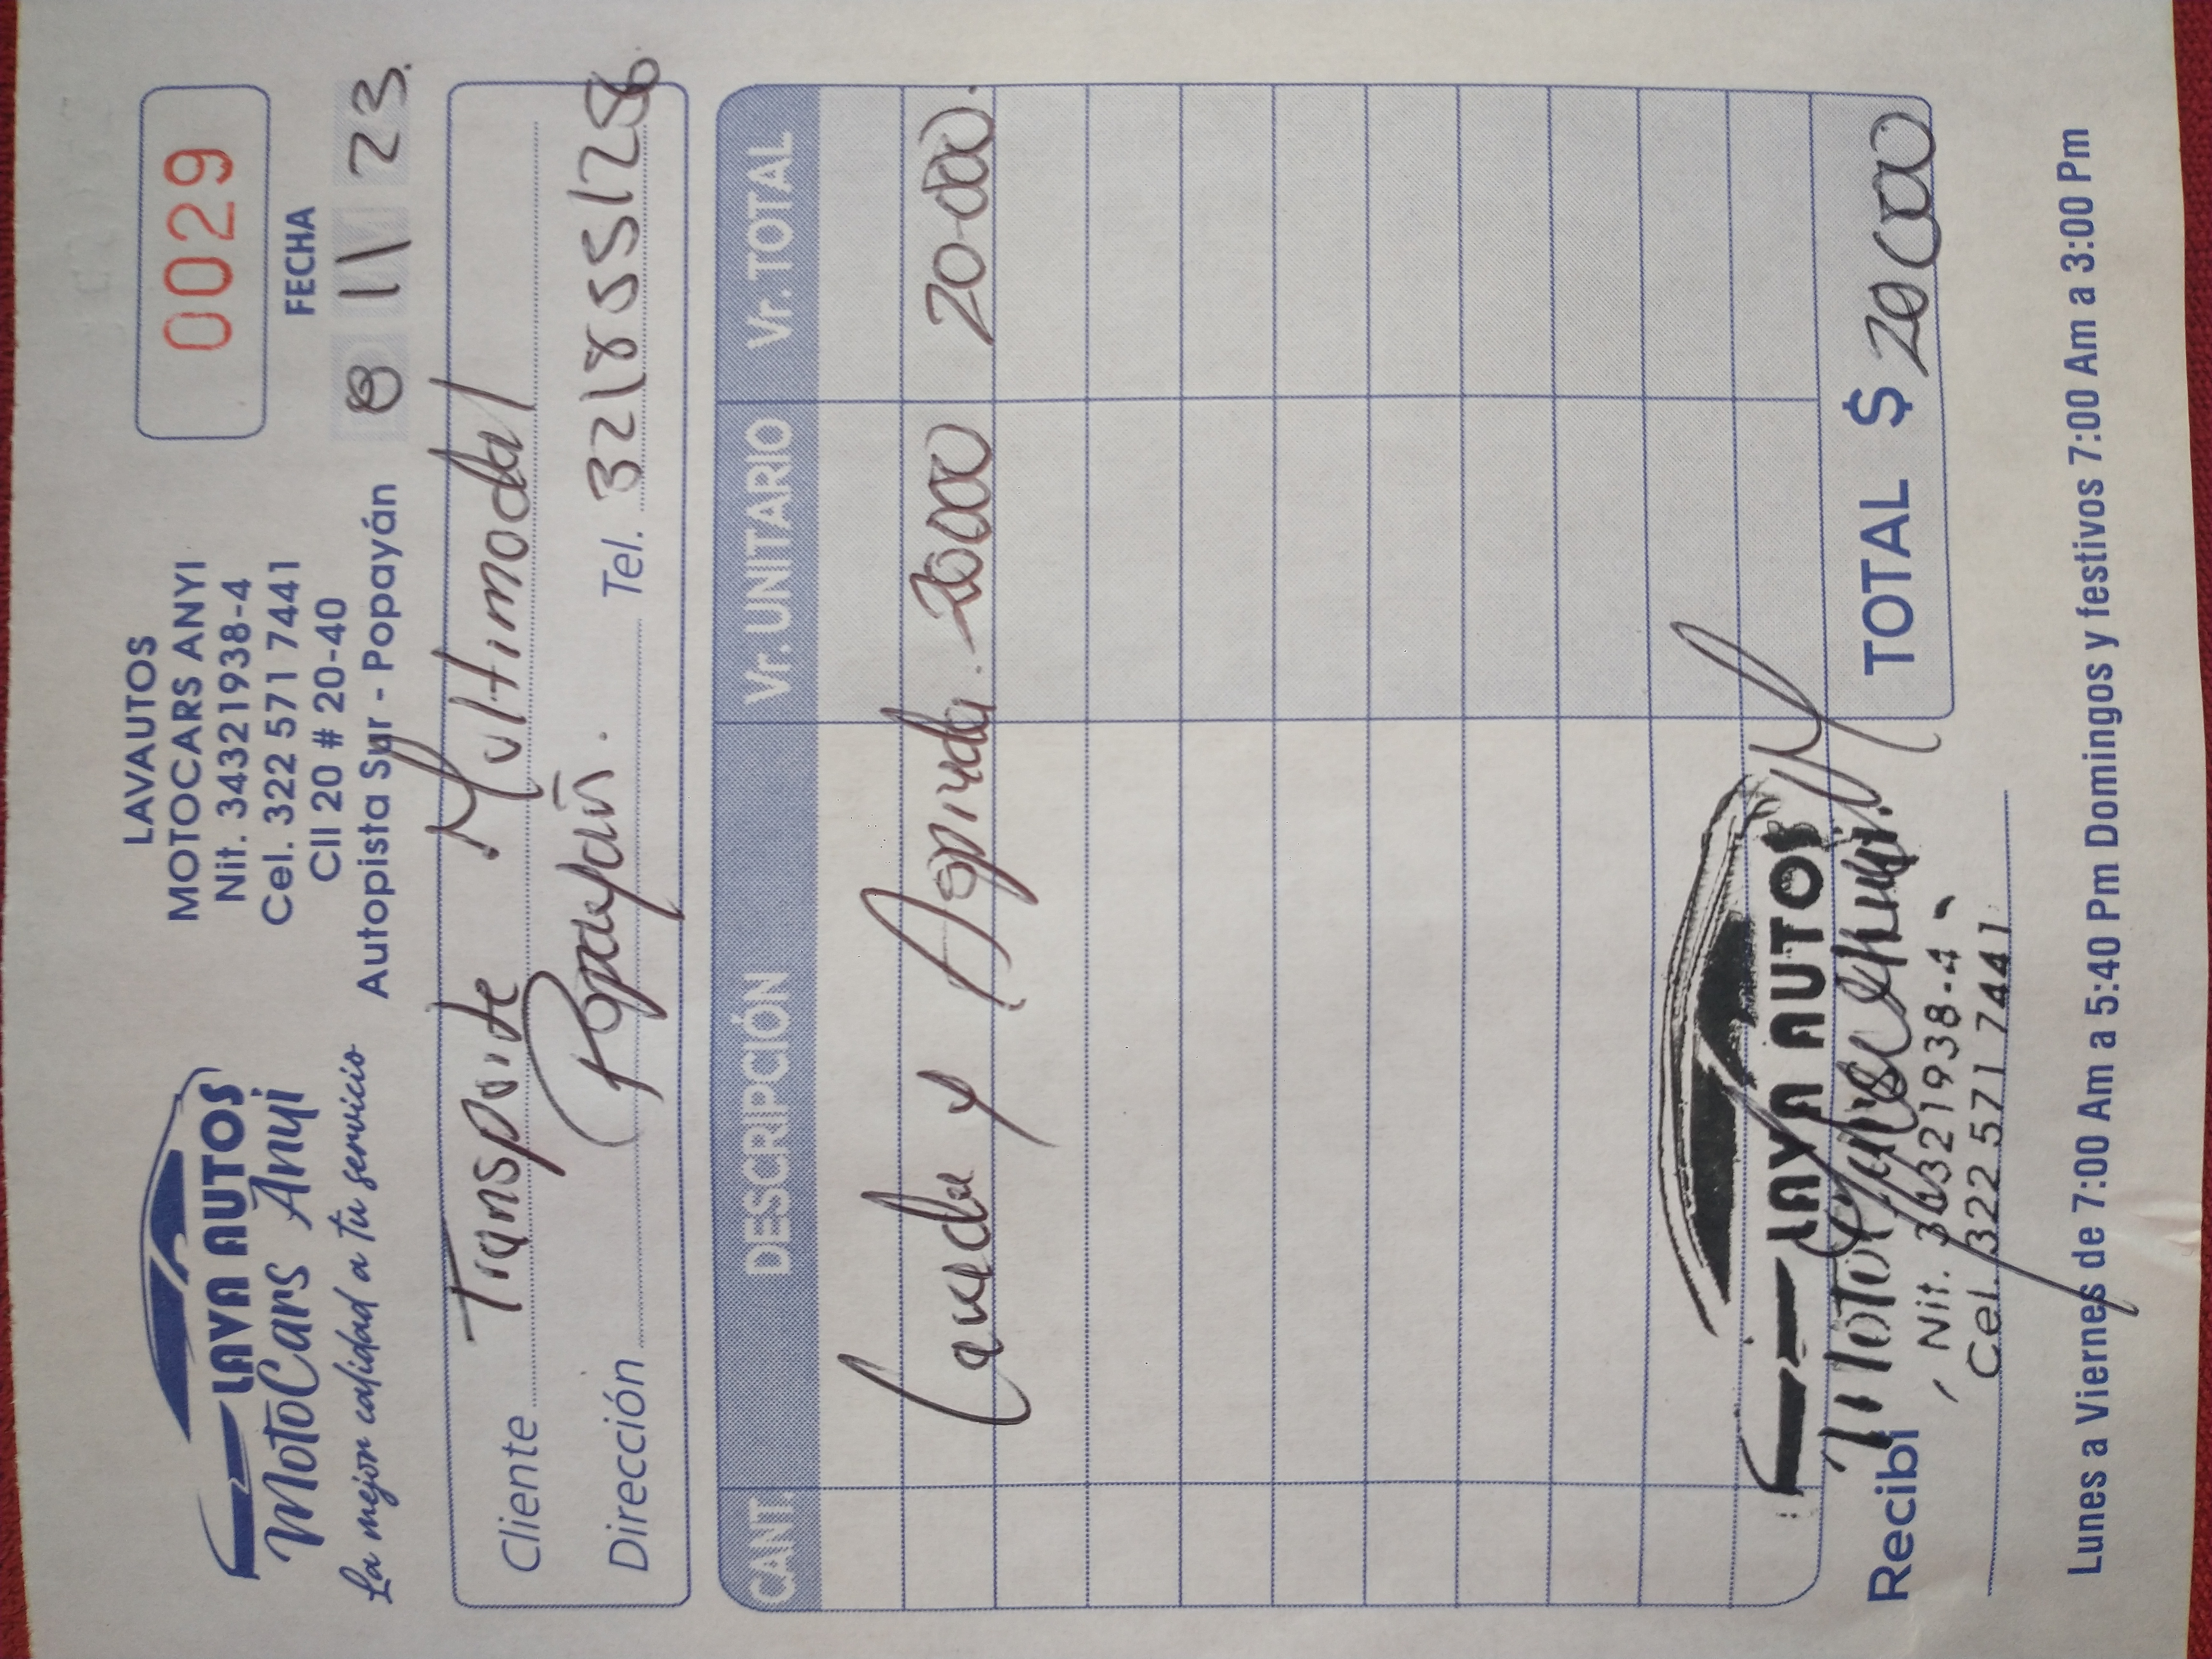 LAVA AUTOS
MotoCars Anyi
La mejor calidad a tu servicio
LAVAUTOS
MOTOCARS ANYI
Nit. 34321938-4
Cel. 322 571 7441
Cll 20 # 20-40
Autopista Sur - Popayán
0029
FECHA
8 11 23.
Cliente Transporte Multimodal
Dirección Popayán. Tel. 3218551286
CANT. DESCRIPCIÓN Vr. UNITARIO Vr. TOTAL
Lavada y Aspirada. 20000 20.000.
TOTAL $ 20000
Recibí
LAVA AUTOS
Nit. 34321938-4
Cel. 322 571 7441
Lunes a Viernes de 7:00 Am a 5:40 Pm Domingos y festivos 7:00 Am a 3:00 Pm